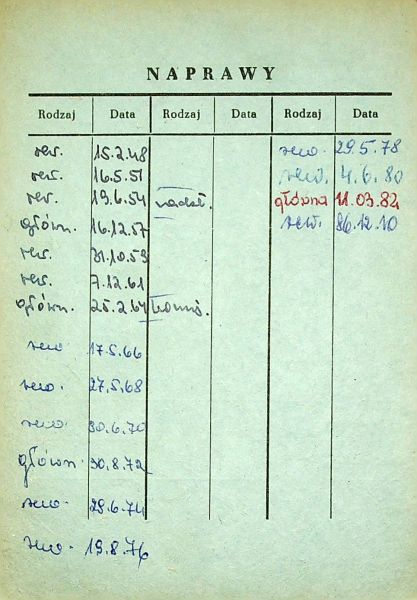 NAPRAWY
Rodzaj Data Rodzaj Data Rodzaj Data
rew. 15.2.48 rew. 29.5.78
rew. 16.5.51 rew. 4.6.80
rew. 19.6.54 główna 11.03.82
główn. 16.12.57 rew. 86.12.10
rew. 31.10.59
rew. 7.12.61
główn. 25.2.64
rew. 17.5.66
rew. 27.5.68
rew. 30.6.70
główn. 30.8.72
rew. 29.6.74
rew. 19.8.76